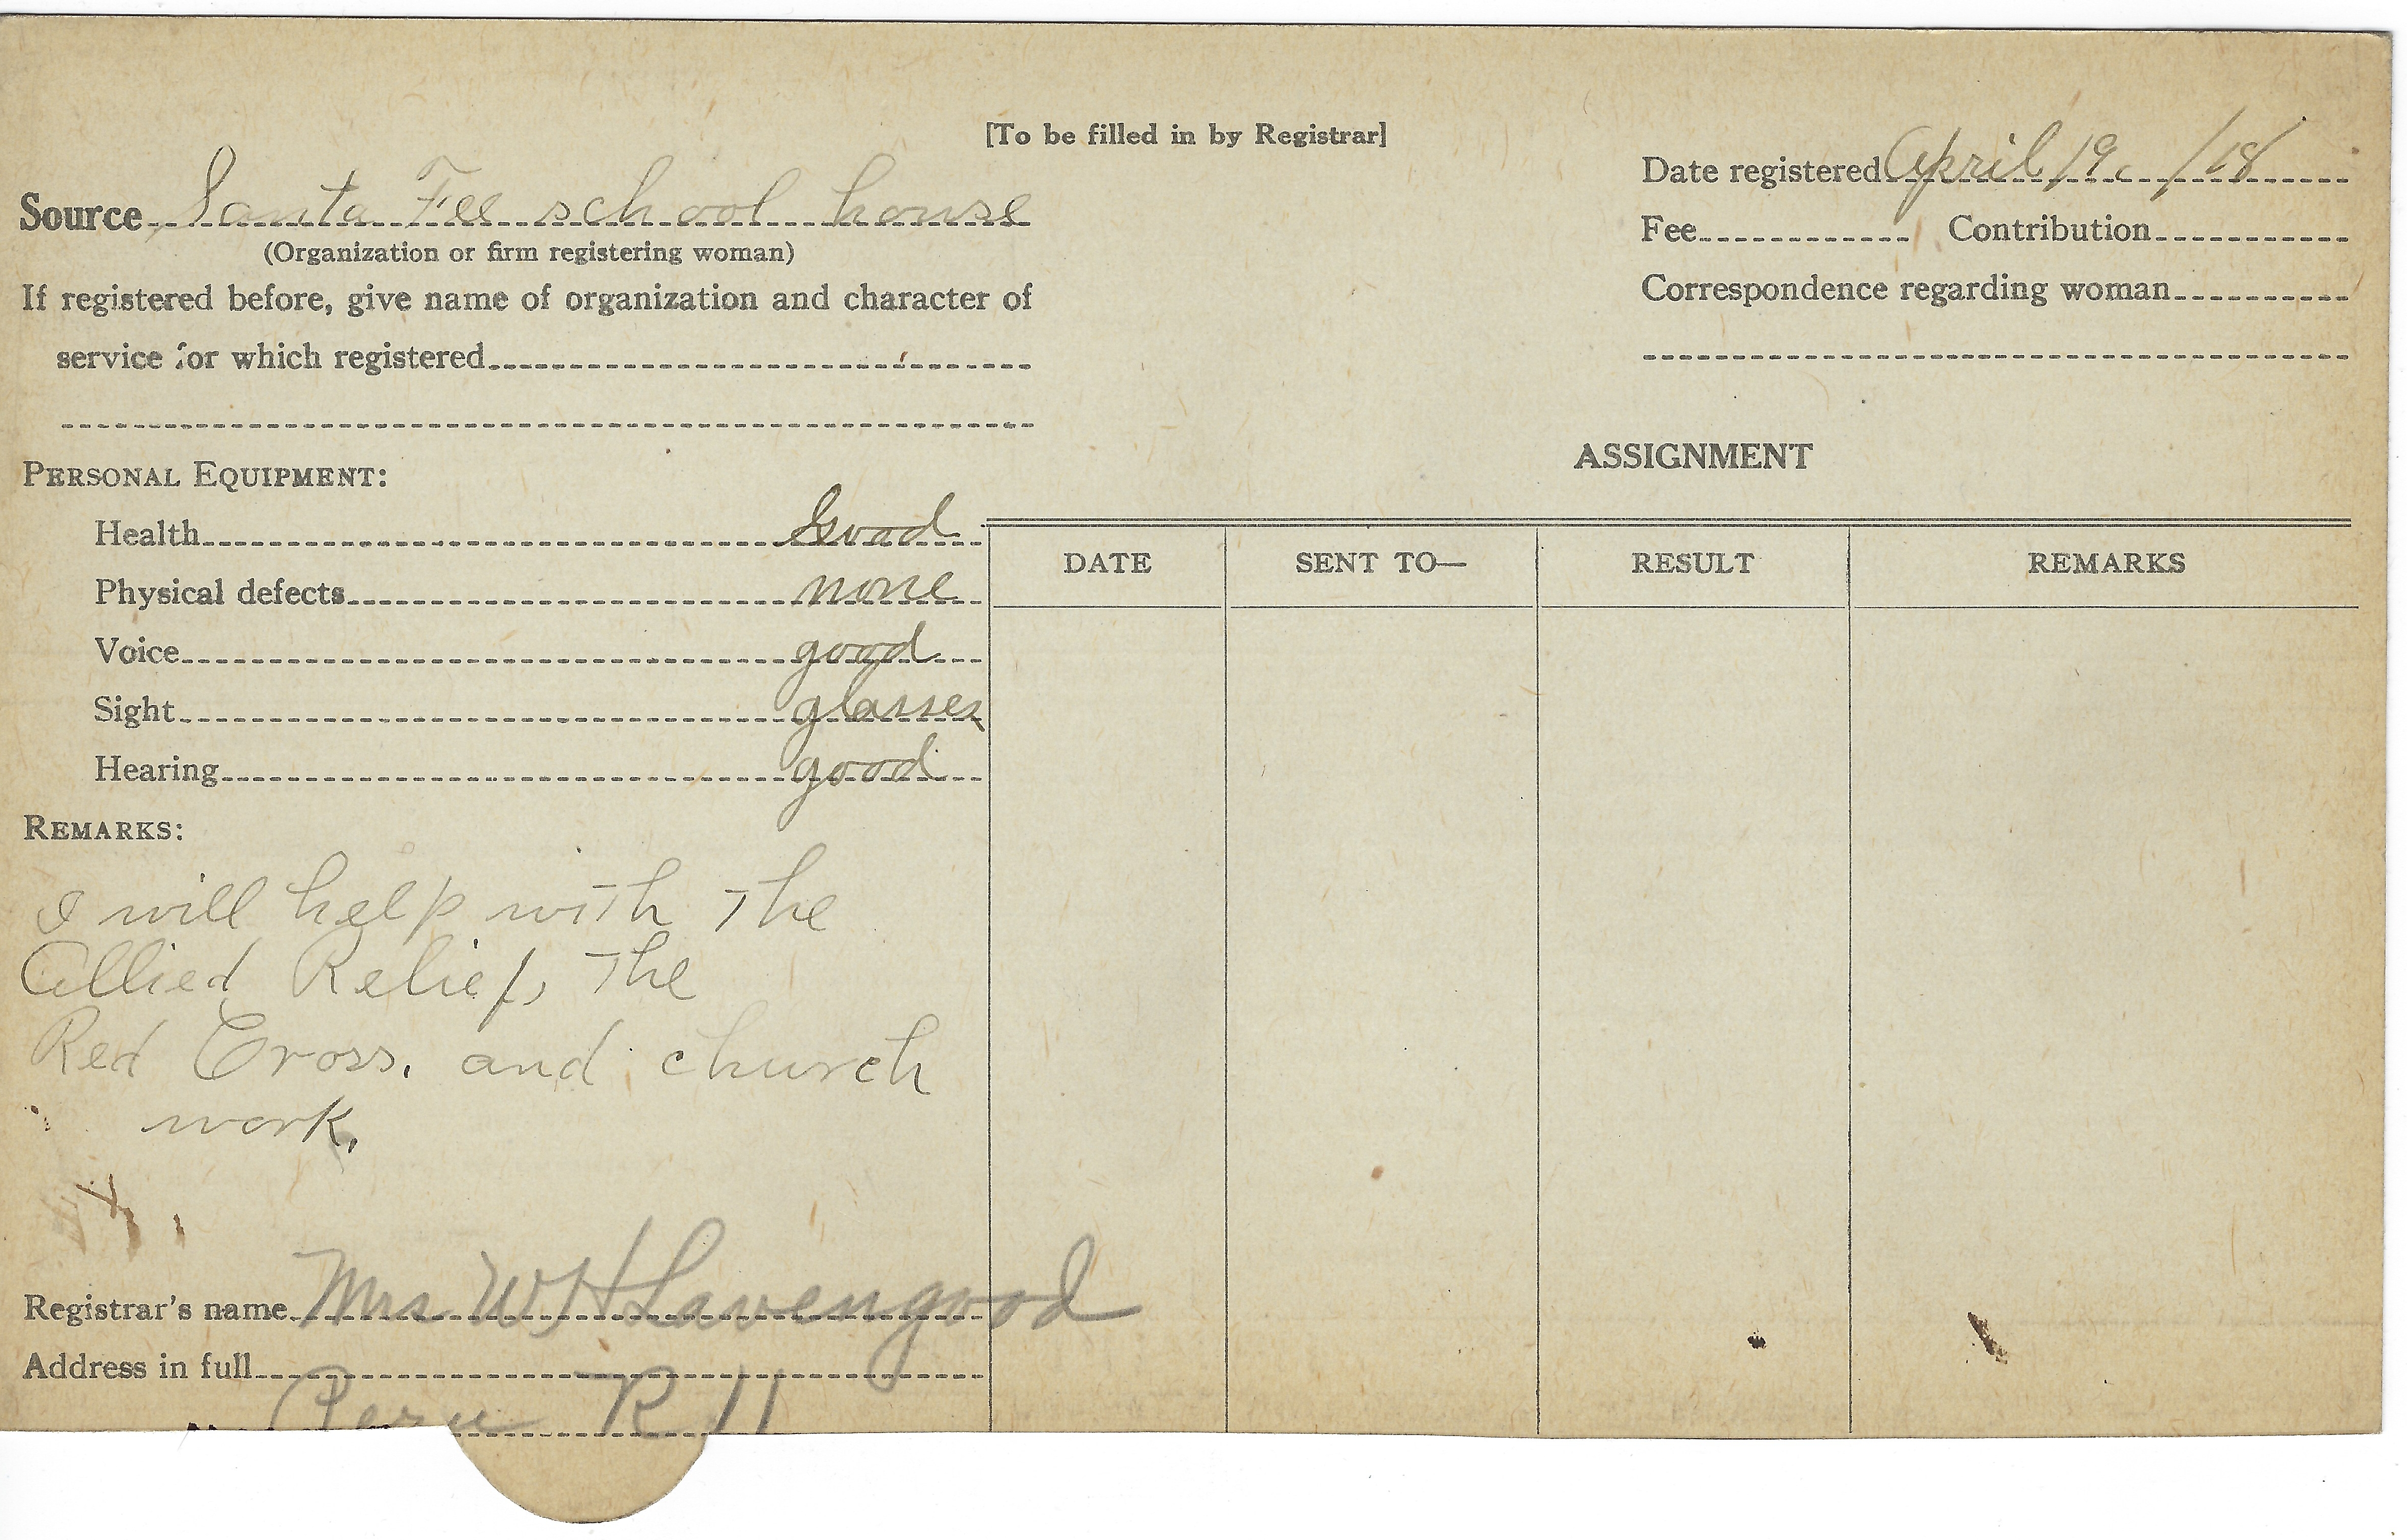 [To be filled in by Registrar]
Date registered April 19. /18
Source Santa Fee school house
Fee Contribution
(Organization or firm registering woman)
If registered before, give name of organization and character of
Correspondence regarding woman
service for which registered
ASSIGNMENT
PERSONAL EQUIPMENT:
Health Good
Physical defects none
Voice good
Sight glasses
Hearing good
DATE SENT TO— RESULT REMARKS
REMARKS:
I will help with the
Allied Relief, the
Red Cross. and church
work.
Registrar's name Mrs. W H Lavengood
Address in full
Peru R 11